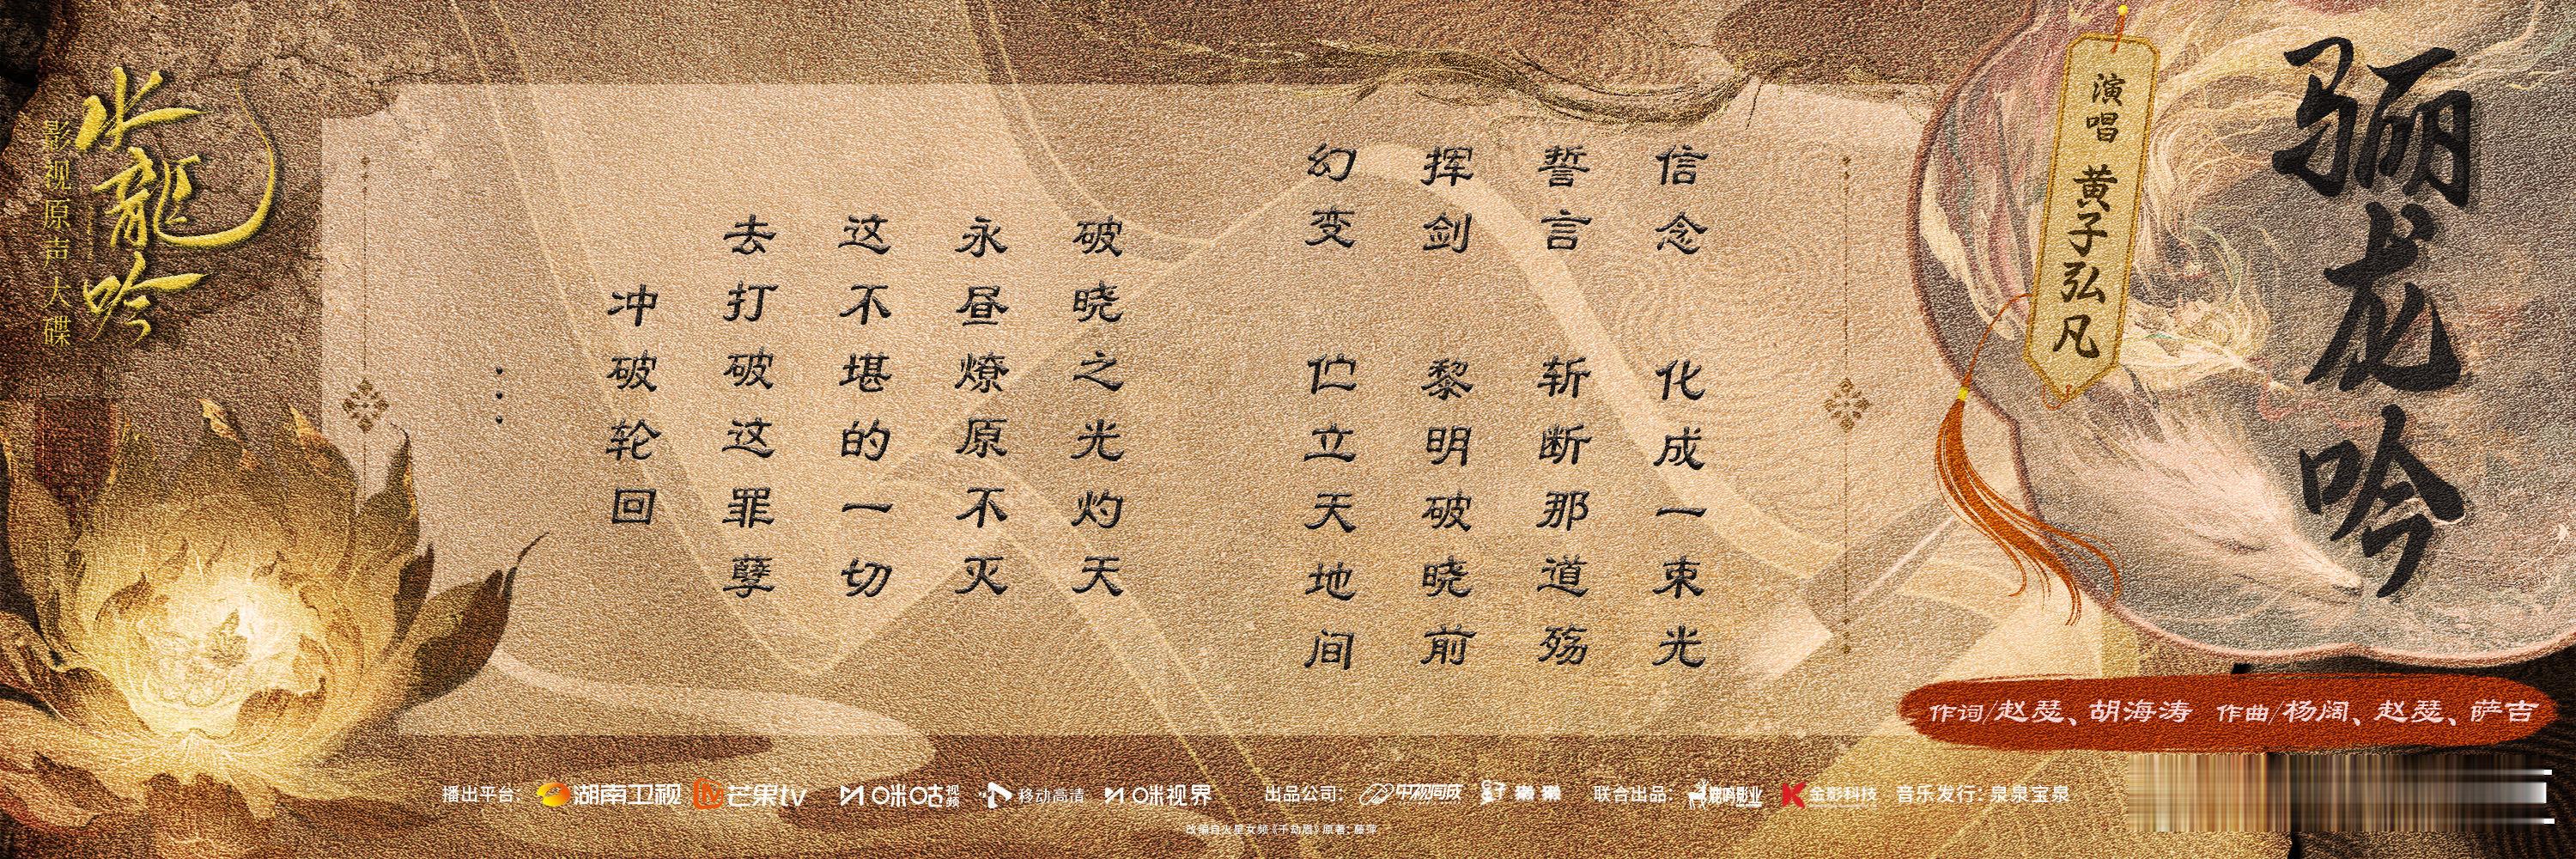 骊龙吟
演唱 黄子弘凡
信念 化成一束光
誓言 斩断那道殇
挥剑 黎明破晓前
幻变 伫立天地间
破晓之光灼天
永昼燎原不灭
这不堪的一切
去打破这罪孽
冲破轮回
...
水龍吟
影视原声大碟
作词/赵瑟、胡海涛 作曲/杨阔、赵瑟、萨吉
播出平台: 湖南卫视 芒果tv 咪咕视频 移动高清 咪视界 出品公司: 中视同成 联合出品: 金影科技 音乐发行: 泉泉宝泉
改编自火星女频《千劫眉》原著: 藤萍